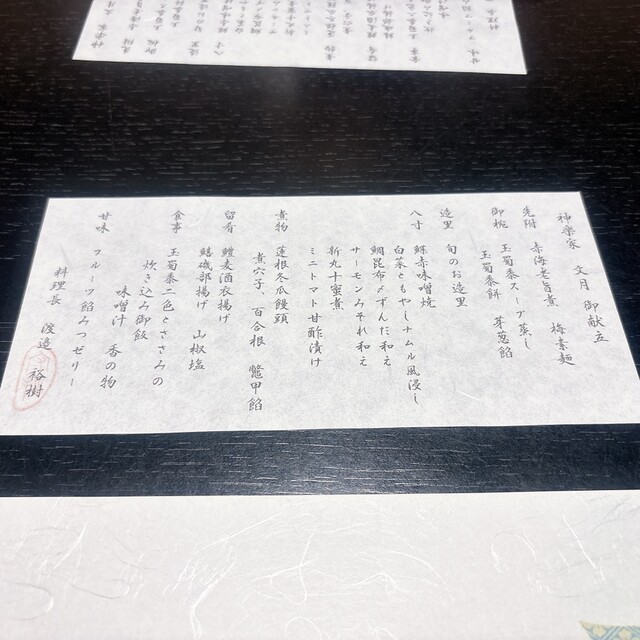 神楽家 文月 御献立
先附 赤海老旨煮 梅素麺
御椀 玉蜀黍スープ蒸し
玉蜀黍餅 芽葱餡
造里 旬のお造里
八寸 鮴赤味噌焼
白菜ともやしナムル風浸し
鯛昆布〆ずんだ和え
サーモンみぞれ和え
新丸十蜜煮
ミニトマト甘酢漬け
煮物 蓮根冬瓜饅頭
煮穴子、百合根 鼈甲餡
留肴 鱧麦酒の揚げ
鱚磯部揚げ 山椒塩
食事 玉蜀黍二色とささみの
炊き込み御飯
味噌汁 香の物
甘味 フルーツ餡みつゼリー
料理長 渡邉 裕樹